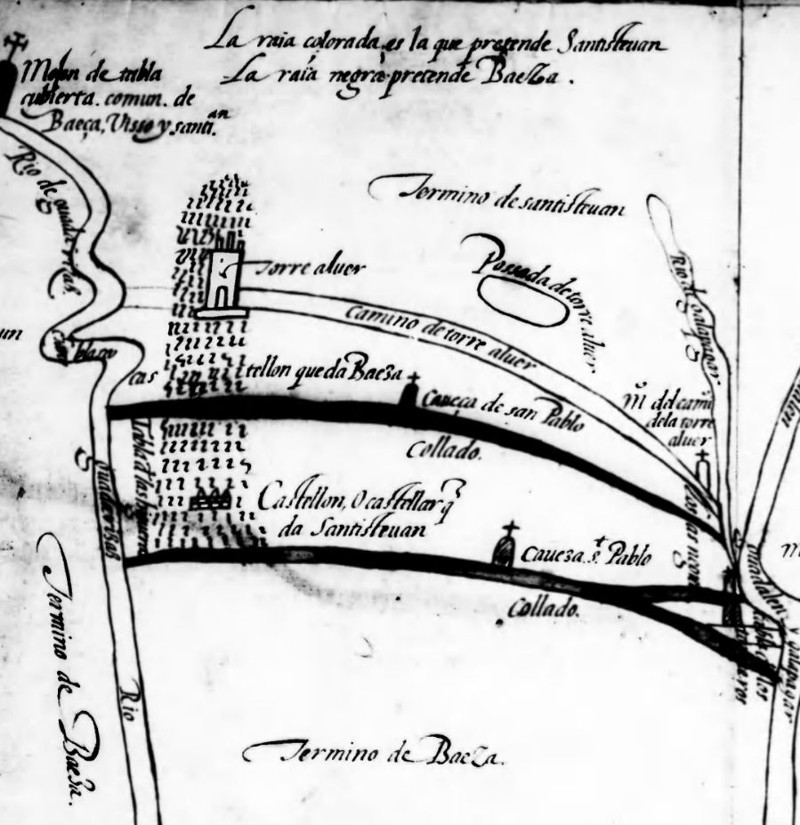 La raia colorada es la que pretende Santisteuan
La raia negra pretende Baeza.
Mojon de tabla
cubierta. comun. de
Baeça, Visso y santi.an
Rio de guadarrifas.
Termino de santisteuan
Torre aluer
Possada de torre aluer
Rio de galapagar
Camino de torre aluer
cas
tellon que da Baeza
Caueça de san Pablo
Collado.
M.º del cami
dela torre
aluer
Castellon, o castellar q̃
da Santisteuan
Caueza s.t Pablo
Collado.
Termino de Baeza.
Rio
guadalen
y galapagar
Termino de Baeza.